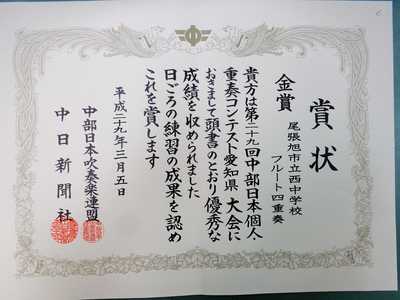 賞状
金賞
尾張旭市立西中学校
フルート四重奏
貴方は第二十九回中部日本個人・
重奏コンテスト愛知県 大会に
おきまして頭書のとおり優秀な
成績を収められました
日ごろの練習の成果を認め
これを賞します
平成二十九年三月五日
中部日本吹奏楽連盟
中日新聞社